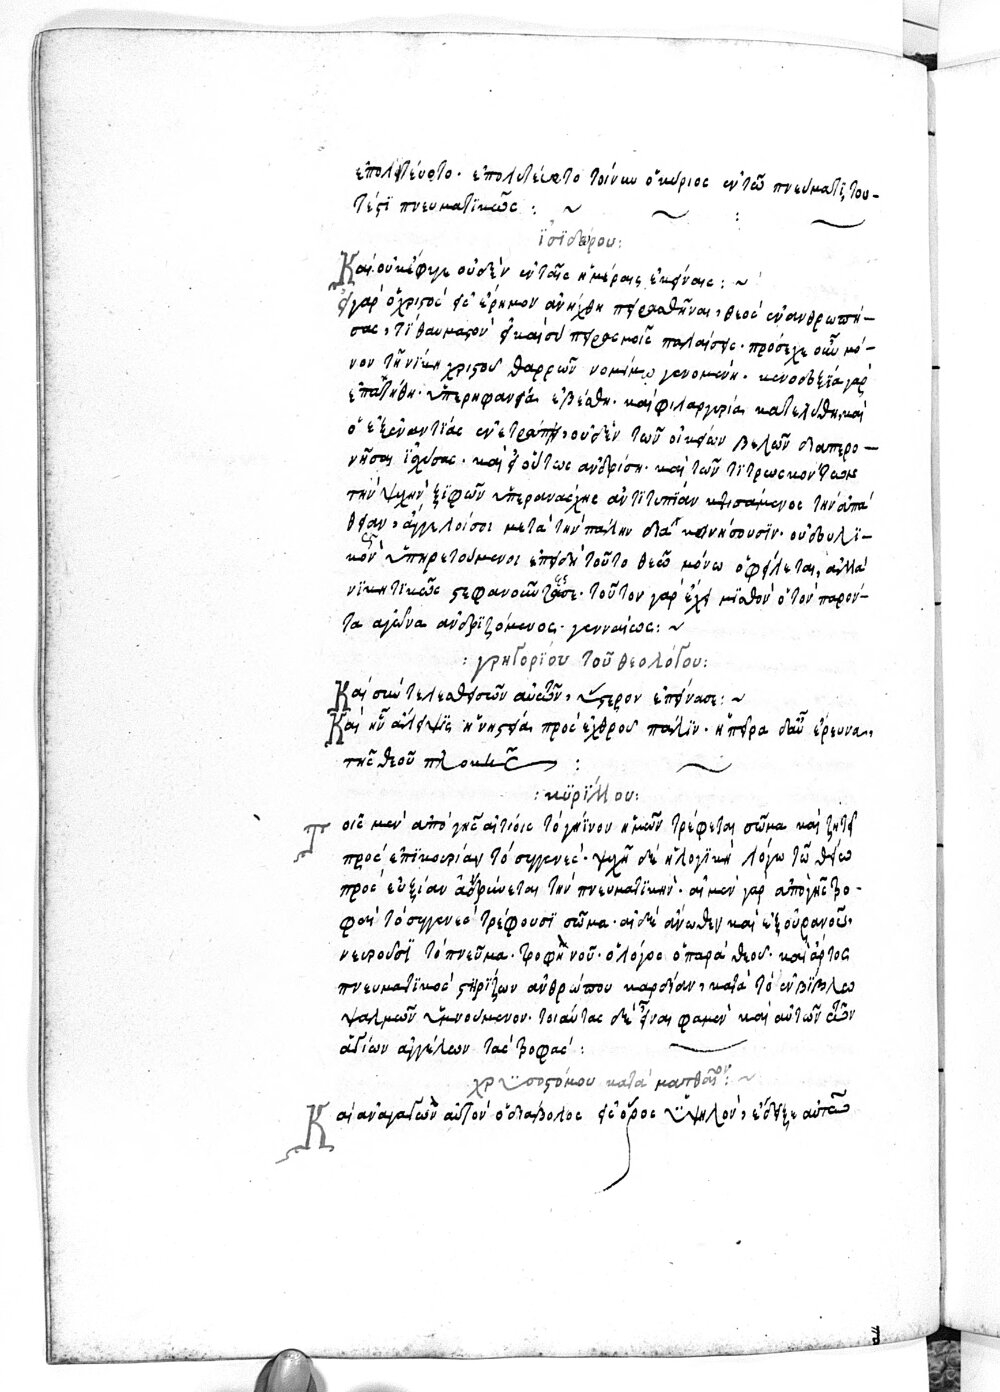 ἐπολιτεύετο· ἐπολιτεύετο τοίνυν ὁ κύριος ἐν τῶ πνεύματι, του-
τέστι πνευματικῶς :~
ἰσιδώρου:
Καὶ οὐκ ἔφαγε οὐδὲν ἐν ταῖς ἡμέραις ἐκείναις :~
εἰ γὰρ ὁ χριστὸς εἰς ἔρημον ἀνήχθη πειρασθῆναι, θεὸς ἐνανθρωπή-
σας, τί θαυμαστὸν εἰ καὶ σὺ πειρασμοῖς παλαίσεις· πρόσεχε οὖν μό-
νον τῆ νίκη χριστοῦ θαρρῶν νομίμω γενομένη· κενοδοξία γὰρ
ἐπατήθη· ὑπερηφανεία ἐβλήθη· καὶ φιλαργυρία κατελύθη, καὶ
ὁ ἐξεναντίας ἐνετράπη, οὐδὲν τῶν οἰκείων βελῶν διαπερο-
νῆσαι ἰσχύσας· καὶ εἰ οὕτως ἀνδρίση· καὶ τῶν τιτρωσκόντων
τὴν ψυχὴν ξιφῶν ὑπερανάσχης ἀντιτυπίαν κτισάμενος τὴν ἀπά
θειαν, ἄγγελοί σοι μετὰ τὴν πάλην διακονήσουσιν· οὐ δουλι-
κῶς ὑπηρετούμενοι ἐπειδὴ τοῦτο θεῶ μόνω ὀφείλεται, ἀλλὰ
νικητικῶς στεφανοῦντές σε· τοῦτον γὰρ ἔχει μισθὸν ὁ τὸν παρόν-
τα ἀγῶνα ἀνδριζόμενος γενναίως :~
: γρηγορίου τοῦ θεολόγου:
Καὶ συντελεσθεισῶν αὐτῶν, ὕστερον ἐπείνασε :~
Καὶ ἦν ἄλειψις ἡ νηστεία πρὸς ἐχθροῦ πάλιν· ἡ πεῖρα δ' αὖ ἔρευνα,
τῆς θεοῦ πλοκῆς :
: κυρίλλου:
Τοῖς μὲν ἀπὸ γῆς σιτίοις τὸ γήϊνον ἡμῶν τρέφεται σῶμα καὶ ζητεῖ
πρὸς ἐπικουρίαν τὸ συγγενές· ψυχὴ δὲ ἡ λογικὴ λόγω τῶ θείω
πρὸς εὐεξίαν ἁδρύνεται τὴν πνευματικήν· αἱ μὲν γὰρ ἀπὸ γῆς τρο-
φαὶ τὸ συγγενὲς τρέφουσι σῶμα· αἱ δὲ ἄνωθεν καὶ ἐξ οὐρανοῦ,
νευροῦσι τὸ πνεῦμα· τροφὴ νοῦ· ὁ λόγος ὁ παρὰ θεοῦ· καὶ ἄρτος
πνευματικὸς στηρίζων ἀνθρώπου καρδίαν, κατὰ τὸ ἐν βίβλω
ψαλμῶν ὑμνούμενον· τοιαύτας δὲ εἶναι φαμὲν καὶ αὐτῶν τῶν
ἁγίων ἀγγέλων τὰς τροφάς :
χρυσοστόμου κατὰ ματθαῖον :~
Καὶ ἀναγαγὼν αὐτὸν ὁ διάβολος εἰς ὄρος ὑψηλὸν, ἔδειξε αὐτῶ